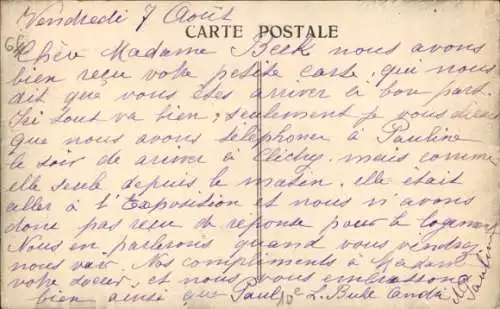 Vendredi 7 Août
CARTE POSTALE
Chère Madame Beck nous avons
bien reçu votre petite carte, qui nous
dit que vous êtes arriver a bon port.
Ici tout va bien, seulement je vous dirai
que nous avons téléphoner à Pauline
le soir de ariver à Clichy. mais comme
elle seule depuis le matin. elle était
aller à l'Exposition et nous n'avons
donc pas reçu de reponse pour le logement
Nous en parlerons quand vous viendrez
nous voir. Nos compliments à Madame
votre soeur, et nous vous embrassons
bien ainsi que Paul